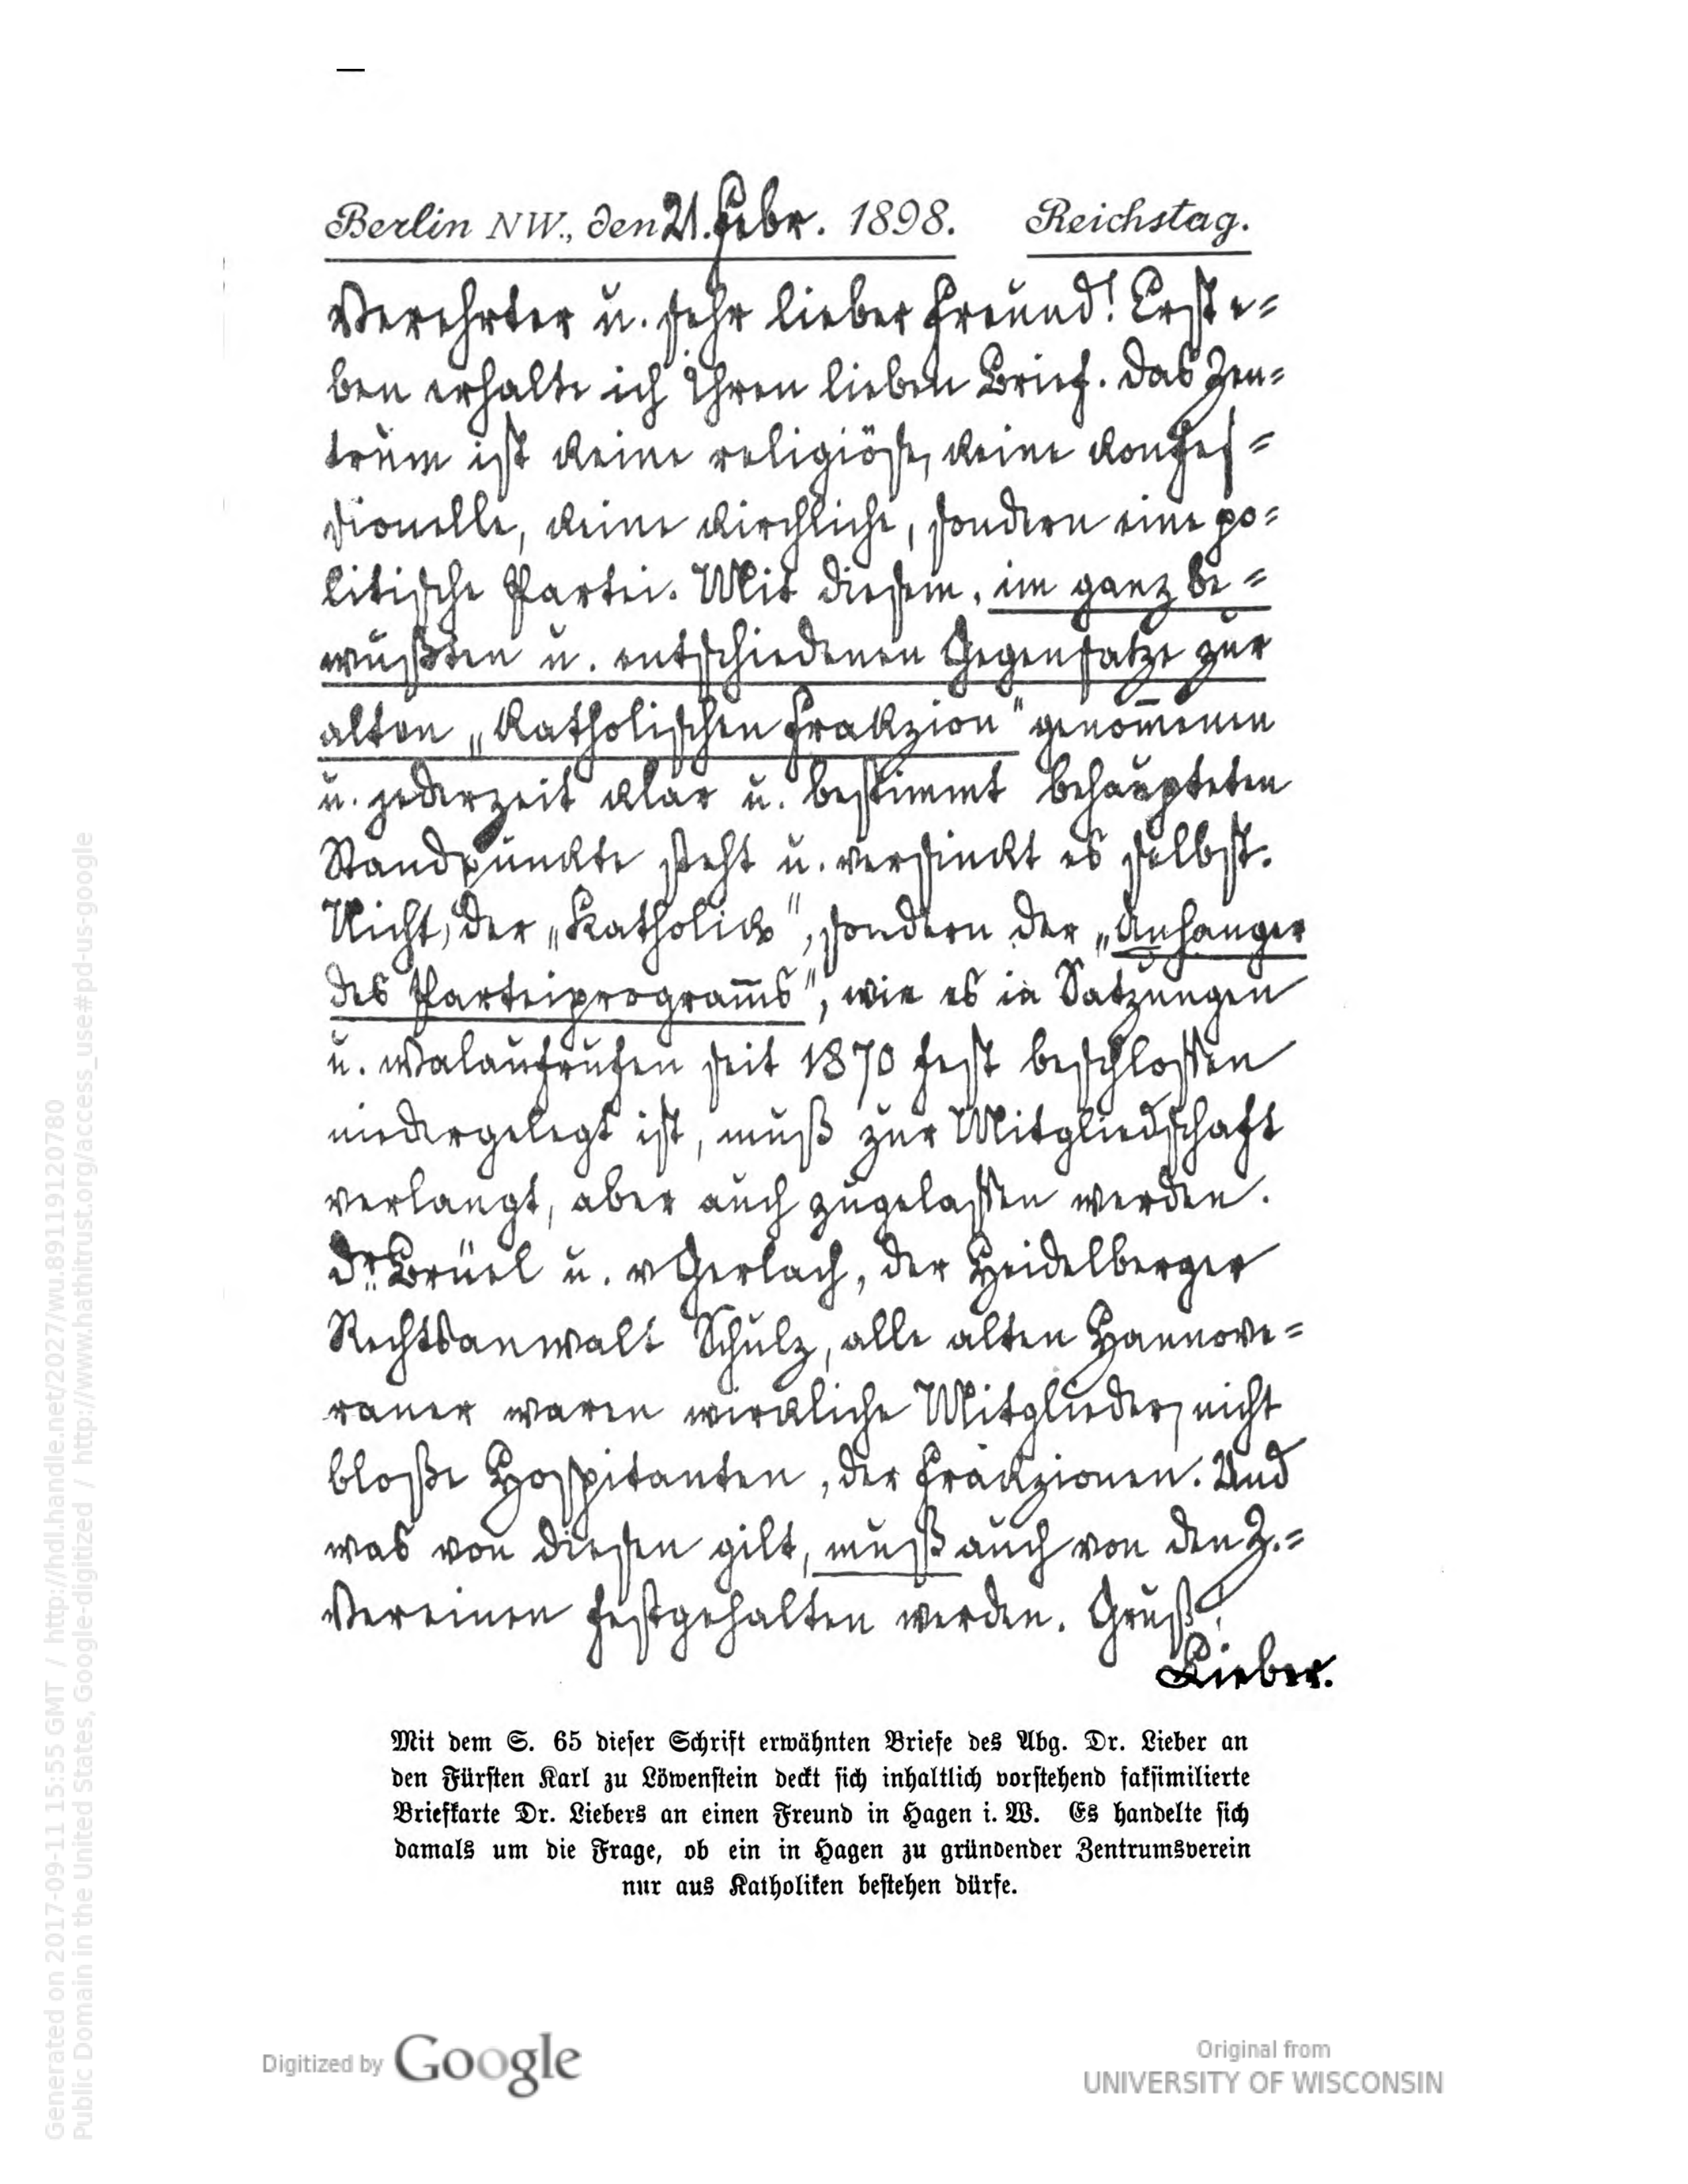 Berlin NW., den 21. Febr. 1898. Reichstag.
Verehrter u. sehr lieber Freund! Erst e-
ben erhalte ich Ihren lieben Brief. Das Zen-
trum ist keine religiöse, keine konfes-
sionelle, keine kirchliche, sondern eine po-
litische Partei. Mit diesem, im ganz be-
wußten u. entschiedenen Gegensatze zur
alten „Katholischen Frakzion“ genom̄enen
u. jederzeit klar u. bestimmt behaupteten
Standpunkte steht u. versinkt es selbst.
Nicht, der „Katholik“, sondern der „Anhanger
des Parteiprogram̄s“, wie es in Satzungen
u. Walaufrufen seit 1870 fest beschlossen
niedergelegt ist, muß zur Mitgliedschaft
verlangt, aber auch zugelassen werden.
Dr. Brüel u. v Gerlach, der Heidelberger
Rechtsanwalt Schulz, alle alten Hannove-
raner waren wirkliche Mitglieder, nicht
bloße Hospitanten, der Frakzionen. Und
was von diesen gilt, muß auch von den Z.-
Vereinen festgehalten werden. Gruß!
Lieber.
Mit dem S. 65 dieser Schrift erwähnten Briefe des Abg. Dr. Lieber an
den Fürsten Karl zu Löwenstein deckt sich inhaltlich vorstehend faksimilierte
Briefkarte Dr. Liebers an einen Freund in Hagen i. W. Es handelte sich
damals um die Frage, ob ein in Hagen zu gründender Zentrumsverein
nur aus Katholiken bestehen dürfe.
Generated on 2017-09-11 15:55 GMT / http://hdl.handle.net/2027/wu.89119120780
Public Domain in the United States, Google-digitized / http://www.hathitrust.org/access_use#pd-us-google
Digitized by Google
Original from
UNIVERSITY OF WISCONSIN